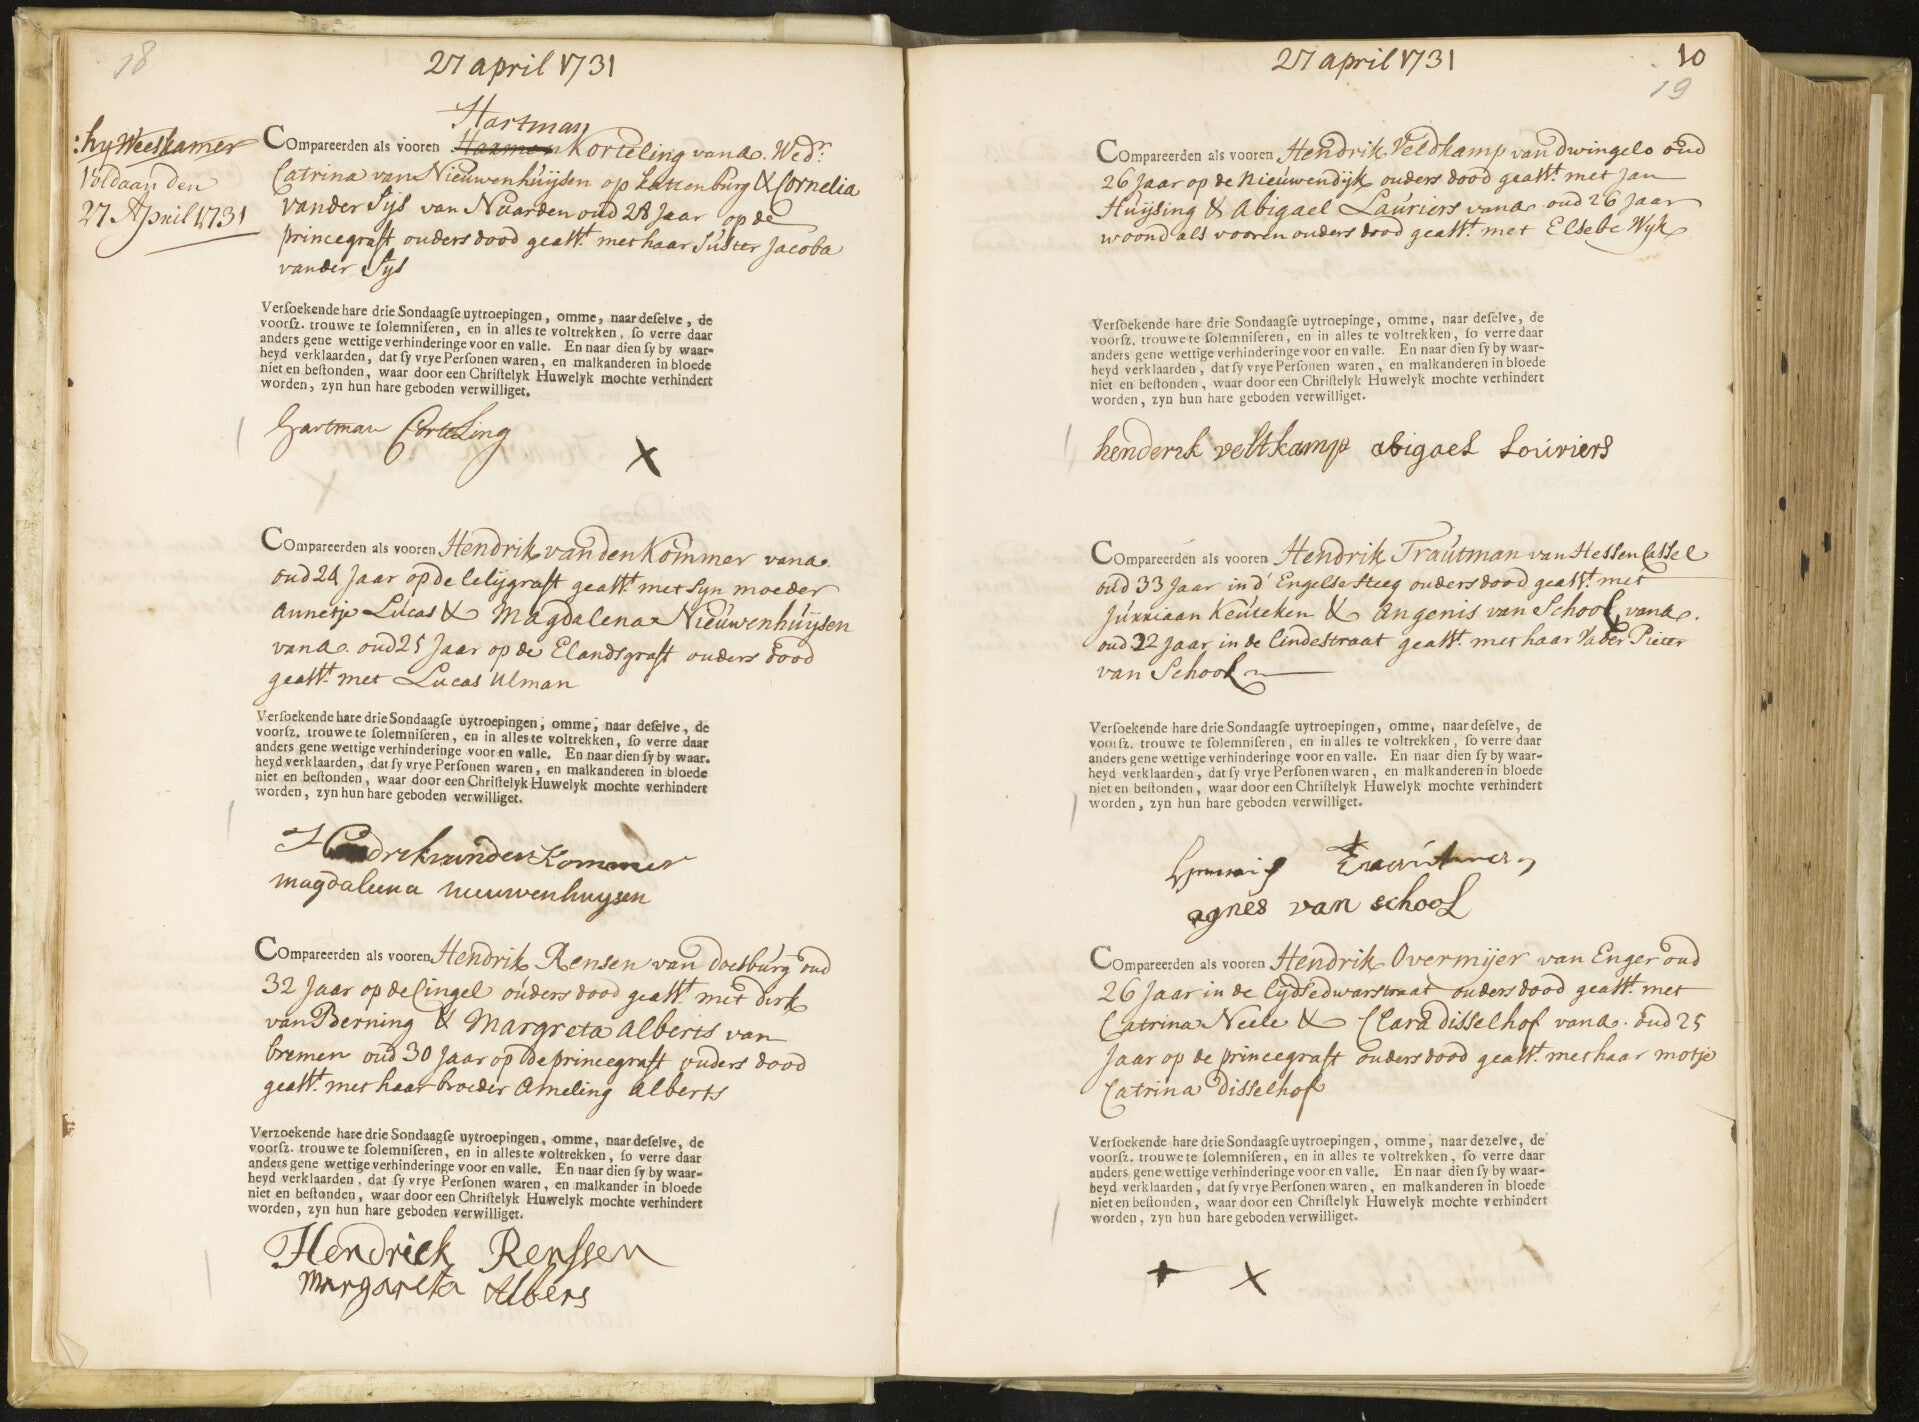 18
27 april 1731
hy Weeskamer
Voldaan den
27 April 1731
Hartman
COmpareerden als vooren Harmen Korteling van A. Wedr.
Catrina van Nieuwenhuijsen op Kattenburg & Cornelia
vander Sijs van Naarden oud 28 Jaar op de
princegraft ouders dood geasst. met haar Suster Jacoba
vander Sijs
Verſoekende hare drie Sondaagſe uytroepingen, omme, naar deſelve, de
voorſz. trouwe te ſolemniſeren, en in alles te voltrekken, ſo verre daar
anders gene wettige verhinderinge voor en valle. En naar dien ſy by waar-
heyd verklaarden, dat ſy vrye Perſonen waren, en malkanderen in bloede
niet en beſtonden, waar door een Chriſtelyk Huwelyk mochte verhindert
worden, zyn hun hare geboden verwilliget.
Hartman Corteling X
COmpareerden als vooren Hendrik vanden Kommer van A.
oud 24 Jaar op de lelijgraft geasst. met syn moeder
Annetje Lucas & Magdalena Nieuwenhuijsen
van A. oud 25 Jaar op de Elandsgraft ouders dood
geasst. met Lucas Ulman
Verſoekende hare drie Sondaagſe uytroepingen, omme, naar deſelve, de
voorſz. trouwe te ſolemniſeren, en in alles te voltrekken, ſo verre daar
anders gene wettige verhinderinge voor en valle. En naar dien ſy by waar-
heyd verklaarden, dat ſy vrye Perſonen waren, en malkanderen in bloede
niet en beſtonden, waar door een Chriſtelyk Huwelyk mochte verhindert
worden, zyn hun hare geboden verwilliget.
Hendrik vanden Kommer
magdaleena nieuwenhuysen
COmpareerden als vooren Hendrik Rensen van doesburg oud
32 Jaar op de Cingel ouders dood geasst. met dirk
van Berning & Margreta Alberts van
bremen oud 30 Jaar op de princegraft ouders dood
geasst. met haar broeder Ameling Alberts
Verzoekende hare drie Sondaagſe uytroepingen, omme, naar deſelve, de
voorſz. trouwe te ſolemniſeren, en in alles te voltrekken, ſo verre daar
anders gene wettige verhinderinge voor en valle. En naar dien ſy by waar-
heyd verklaarden, dat ſy vrye Perſonen waren, en malkander in bloede
niet en beſtonden, waar door een Chriſtelyk Huwelyk mochte verhindert
worden, zyn hun hare geboden verwilliget.
Hendrick Renssen
Margareta Albers
27 april 1731
10
19
COmpareerden als vooren Hendrik Veldkamp van dwingelo oud
26 Jaar op de Nieuwendijk ouders dood geasst. met Jan
Huijsing & Abigael Lauriers van A. oud 26 Jaar
woond als vooren ouders dood geasst. met Elsebe Wijk
Verſoekende hare drie Sondaagſe uytroepinge, omme, naar deſelve, de
voorſz. trouwe te ſolemniſeren, en in alles te voltrekken, ſo verre daar
anders gene wettige verhinderinge voor en valle. En naar dien ſy by waar-
heyd verklaarden, dat ſy vrye Perſonen waren, en malkanderen in bloede
niet en beſtonden, waar door een Chriſtelyk Huwelyk mochte verhindert
worden, zyn hun hare geboden verwilliget.
henderik veltkamp abigael Louriers
COmpareerden als vooren Hendrik Trautman van Hessen Cassel
oud 33 Jaar in d' Engelse steeg ouders dood geasst. met
Jurriaan Keuteken & Angenis van School van A.
oud 22 Jaar in de lindestraat geasst. met haar Vader Pieter
van School
Verſoekende hare drie Sondaagſe uytroepingen, omme, naar deſelve, de
voorſz. trouwe te ſolemniſeren, en in alles te voltrekken, ſo verre daar
anders gene wettige verhinderinge voor en valle. En naar dien ſy by waar-
heyd verklaarden, dat ſy vrye Perſonen waren, en malkanderen in bloede
niet en beſtonden, waar door een Chriſtelyk Huwelyk mochte verhindert
worden, zyn hun hare geboden verwilliget.
agnes van school
COmpareerden als vooren Hendrik Overmijer van Enger oud
26 Jaar in de lijdsedwarstraat ouders dood geasst. met
Catrina Neele & Clara disselhof van A. oud 25
Jaar op de princegraft ouders dood geasst. met haar motje
Catrina disselhof
Verſoekende hare drie Sondaagſe uytroepingen, omme, naar dezelve, de
voorſz. trouwe te ſolemniſeren, en in alles te voltrekken, ſo verre daar
anders gene wettige verhinderinge voor en valle. En naar dien ſy by waar-
heyd verklaarden, dat ſy vrye Perſonen waren, en malkanderen in bloede
niet en beſtonden, waar door een Chriſtelyk Huwelyk mochte verhindert
worden, zyn hun hare geboden verwilliget.
+ X